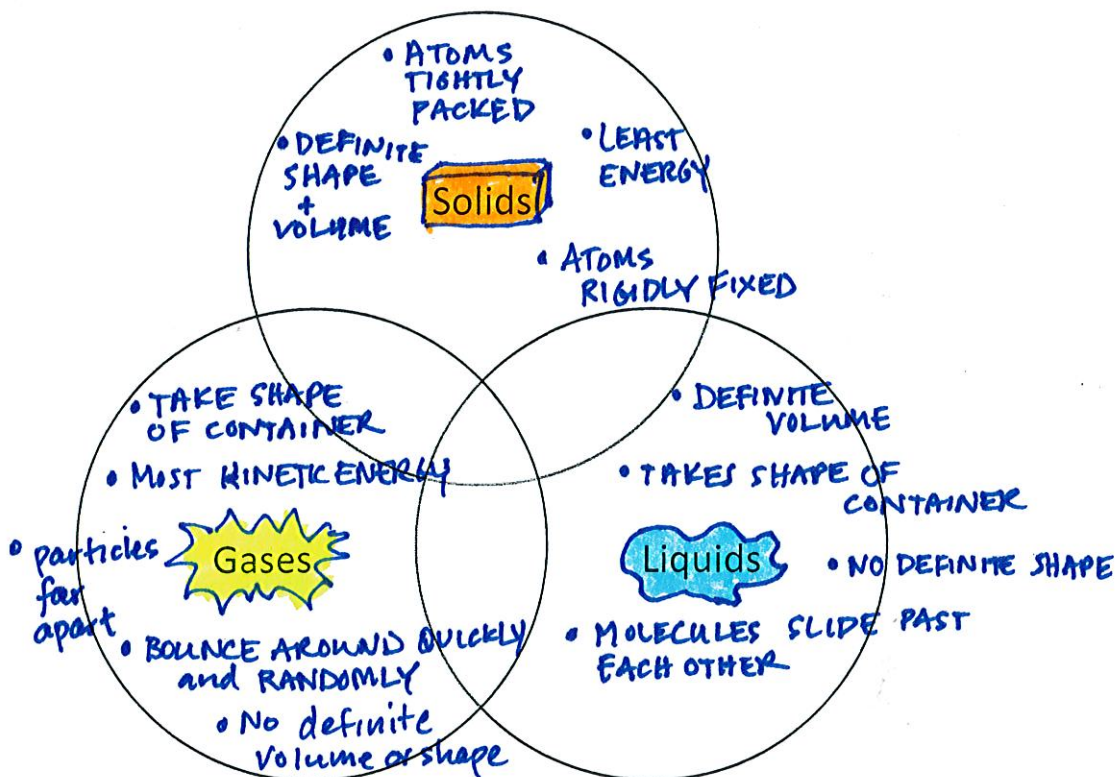 • ATOMS
TIGHTLY
PACKED
• DEFINITE
SHAPE
+
VOLUME
• LEAST
ENERGY
Solids
• ATOMS
RIGIDLY FIXED
• TAKE SHAPE
OF CONTAINER
• MOST KINETIC ENERGY
• particles
far
apart
Gases
• BOUNCE AROUND QUICKLY
and RANDOMLY
• No definite
volume or shape
• DEFINITE
VOLUME
• TAKES SHAPE OF
CONTAINER
Liquids
• NO DEFINITE SHAPE
• MOLECULES SLIDE PAST
EACH OTHER